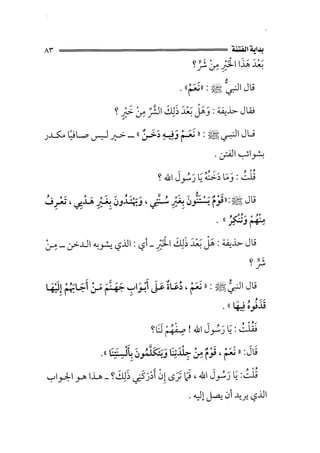 بداية الفتنة ٨٣
بَعْدَ هَذَا الْخَيْرِ مِنْ شَرٍّ؟
قال النبيُّ ﷺ : «نَعَمْ» .
فقال حذيفة : وَهَلْ بَعْدَ ذَلِكَ الشَّرِّ مِنْ خَيْرٍ ؟
قـال النبـي ﷺ : «نَعَـمْ وَفِيـهِ دَخَـنٌ» ــ خـير لـيس صـافيًا مكـدر
بشوائب الفتن .
قُلْتُ : وَمَا دَخَنُهُ يَا رَسُولَ الله ؟
قال ﷺ :«قَوْمٌ يَسْتَنُّونَ بِغَيْرِ سُنَّتِي ، وَيَهْتَدُونَ بِغَيْرِ هَدْيِي ، تَعْرِفُ
مِنْهُمْ وَتُنْكِرُ» .
قال حذيفة : هَلْ بَعْدَ ذَلِكَ الْخَيْرِ ـ أي : الذي يشوبه الدخن ــ مِـنْ
شَرٍّ ؟
قال النبيُّ ﷺ : «نَعَمْ ، دُعَـاةٌ عَـلَى أَبْـوَابِ جَهَنَّمَ مَـنْ أَجَـابَهُمْ إِلَيْهَـا
قَذَفُوهُ فِيهَا» .
فَقُلْتُ : يَا رَسُولَ الله ! صِفْهُمْ لَنَا؟
قَالَ: «نَعَمْ ، قَوْمٌ مِنْ جِلْدَتِنَا وَيَتَكَلَّمُونَ بِأَلْسِنَتِنَا».
قُلْتُ: يَا رَسُولَ الله ، فَمَا تَرَى إِنْ أَدْرَكَنِي ذَلِكَ؟ ـ هـذا هـو الجـواب
الذي يريد أن يصل إليه .